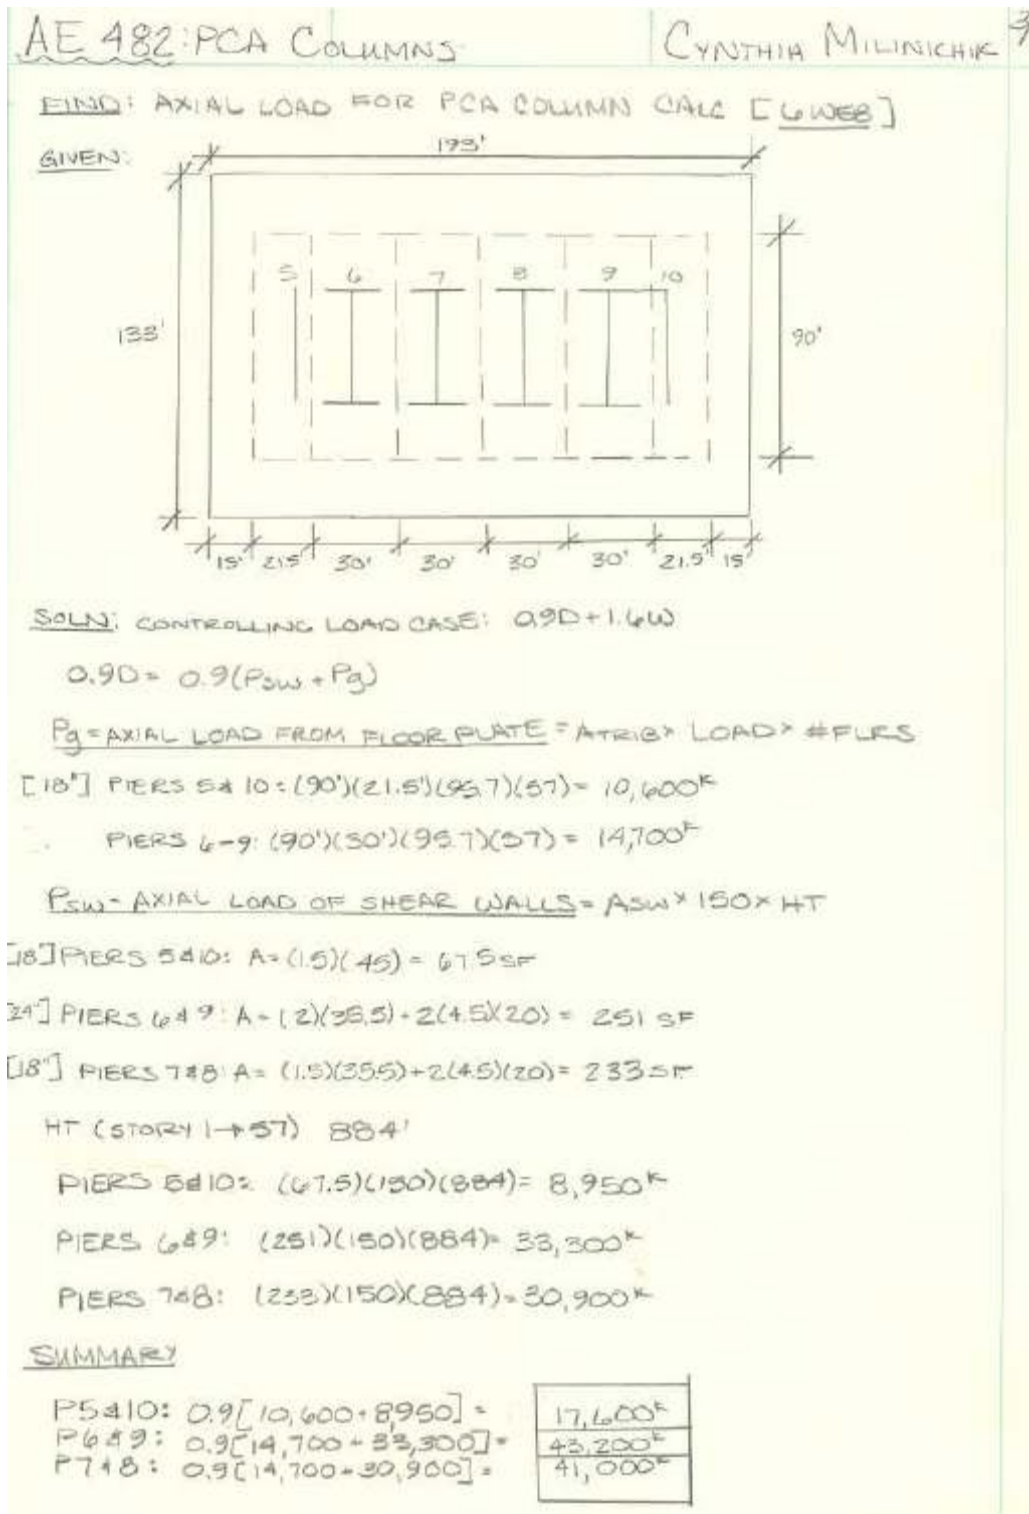 AE 482: PCA COLUMNS
CYNTHIA MILINICHIK
FIND: AXIAL LOAD FOR PCA COLUMN CALC [6 WEB]
GIVEN:
193'
5 6 7 8 9 10
133'
90'
15' 21.5 30' 30' 30' 30' 21.5' 15'
SOLN: CONTROLLING LOAD CASE: 0.9D+1.6W
0.9D = 0.9(Psw + Pg)
Pg = AXIAL LOAD FROM FLOOR PLATE = ATRIB × LOAD × #FLRS
[18"] PIERS 5&10: (90')(21.5')(95.7)(57) = 10,600ᵏ
PIERS 6-9: (90')(30')(95.7)(57) = 14,700ᵏ
Psw = AXIAL LOAD OF SHEAR WALLS = Asw × 150 × HT
[18"] PIERS 5&10: A = (1.5)(45) = 67.5 SF
[24"] PIERS 6&9: A = (2)(35.5) + 2(4.5)(20) = 251 SF
[18"] PIERS 7&8: A = (1.5)(35.5) + 2(4.5)(20) = 233 SF
HT (STORY 1→57) 884'
PIERS 5&10: (67.5)(150)(884) = 8,950ᵏ
PIERS 6&9: (251)(150)(884) = 33,300ᵏ
PIERS 7&8: (233)(150)(884) = 30,900ᵏ
SUMMARY
P5&10: 0.9[10,600 + 8,950] = 17,600ᵏ
P6&9: 0.9[14,700 + 33,300] = 43,200ᵏ
P7&8: 0.9[14,700 + 30,900] = 41,000ᵏ